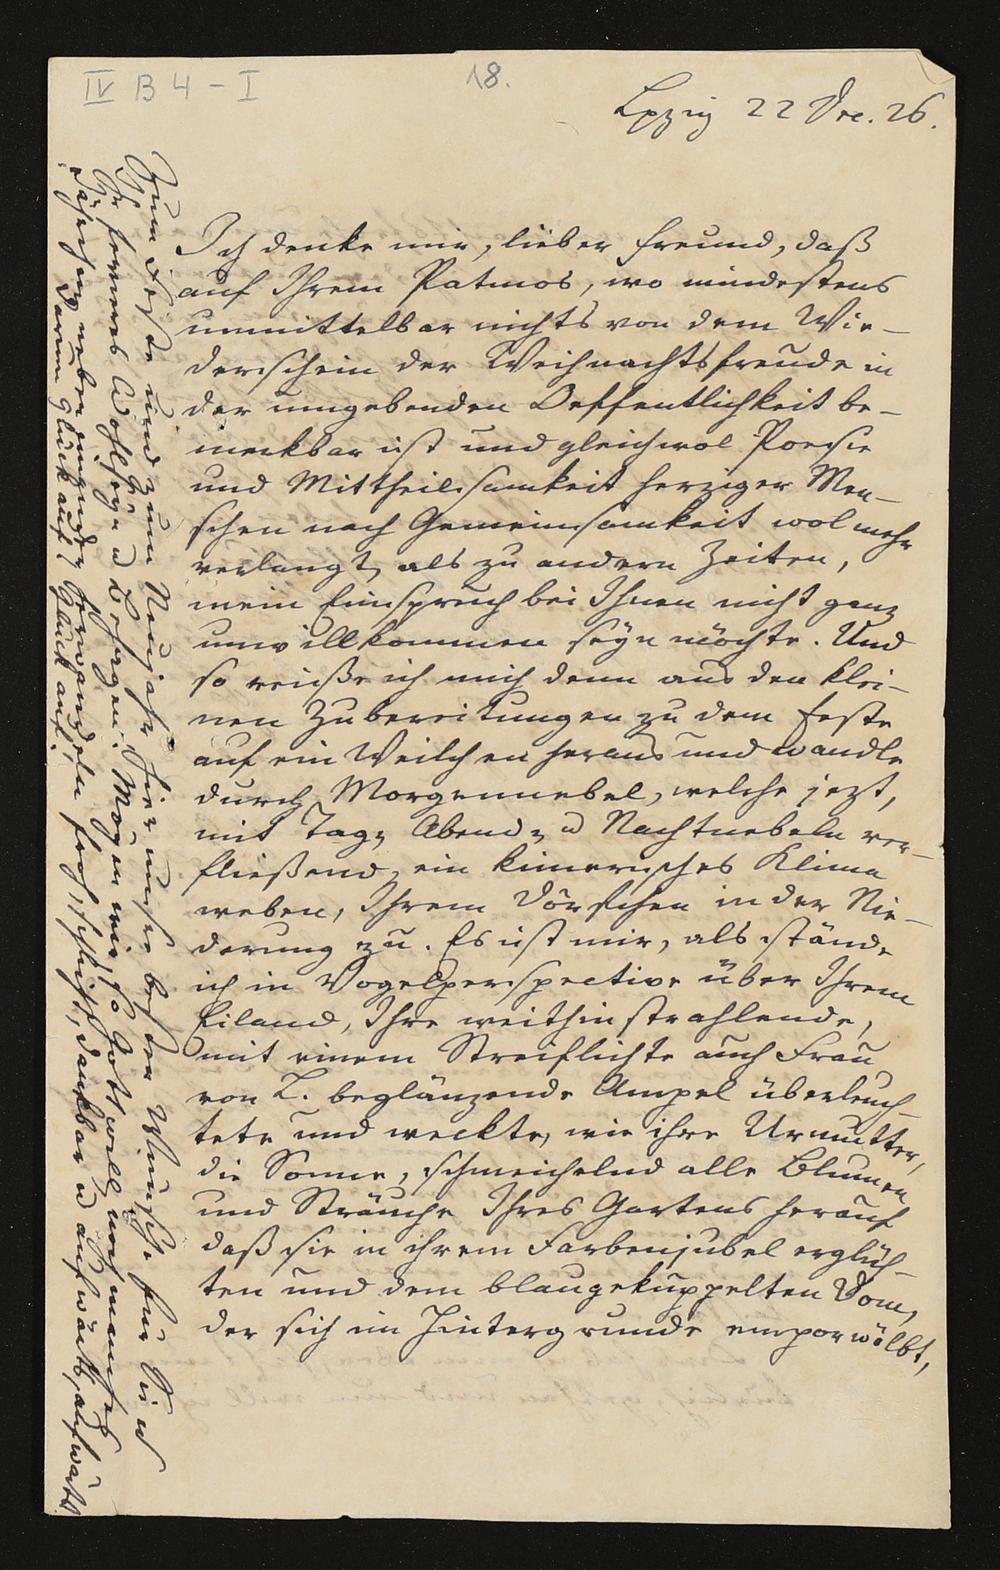 IV B 4 - I
18.
Lpzig 22 Dec. 26.
Ich denke mir, lieber Freund, daß
auf Ihrem Patmos, wo mindestens
unmittelbar nichts von dem Wie-
derschein der Weihnachtsfreude in
der umgebenden Oeffentlichkeit be-
merkbar ist und gleichwol Poesie
und Mittheilsamkeit herziger Men-
schen nach Gemeinsamkeit wol mehr
verlangt, als zu andern Zeiten,
mein Einspruch bei Ihnen nicht ganz
unwillkommen seyn möchte. Und
so reiße ich mich denn aus den klei-
nen Zubereitungen zu dem Feste
auf ein Weilchen heraus und wandle
durch Morgennebel, welche jezt,
mit Tag- Abend- u Nachtnebeln ver-
fließend, ein kimerisches Klima
weben, Ihrem Dörfchen in der Nie-
derung zu. Es ist mir, als stände
ich in Vogelperspective über Ihrem
Eiland, Ihre weithin strahlende,
mit einem Streiflichte auch Frau
von L. beglänzende Ampel überleuch-
tete und weckte, wie ihre Urmutter,
die Sonne, schmeichelnd alle Blumen
und Sträuche Ihres Gartens herauf
daß sie in ihrem Farbenjubel erglüh-
ten und dem blaugekuppelten Dom,
der sich im Hintergrunde emporwölbt,
Zum Feste und zum Neujahr hier unsre besten Wünsche für Sie u
Ihr ferneres Wohlseyn u Behagen. Mögen wir, so Gott will, noch manches
Jährchen neben einander hinwandeln froh, schlicht, dankbar u aufwärts, aufwärts
Darum Glück auf! Glück auf!